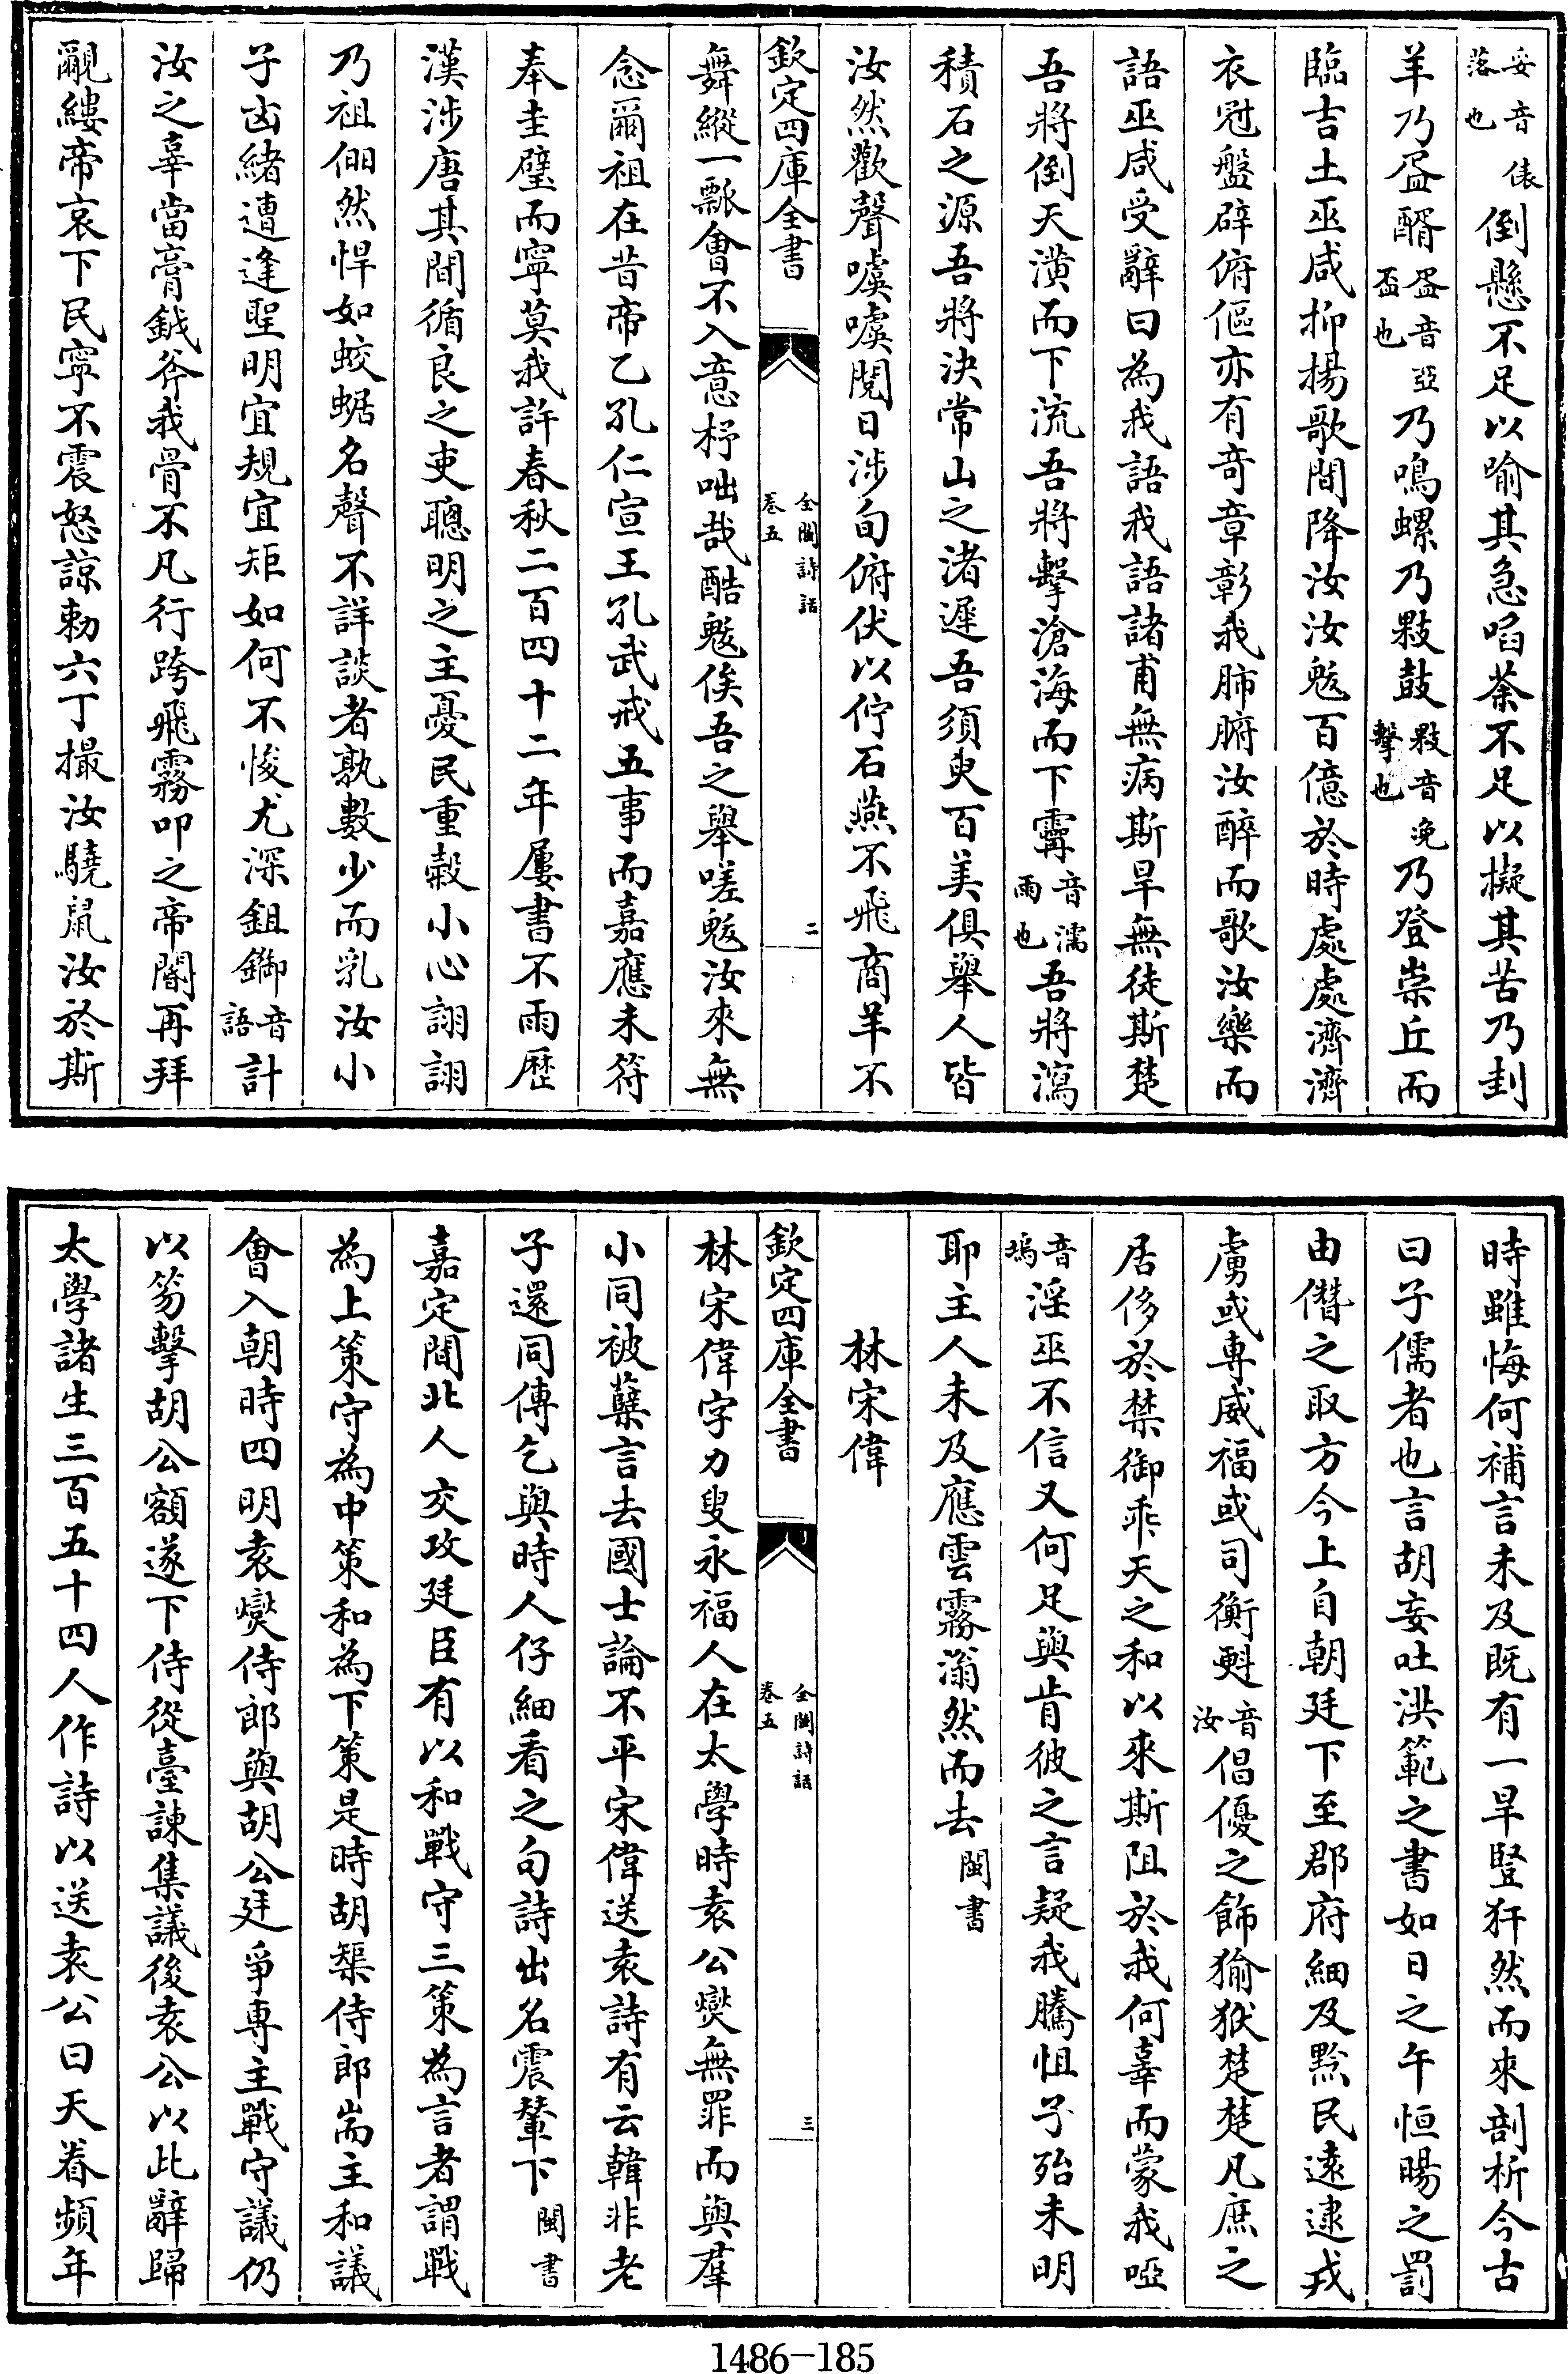 妥音俵落也倒懸不足以喻其急啗荼不足以擬其苦乃刲
羊乃盃醑盃音亞盃也乃鳴螺乃敤鼓敤音浼擊也乃登崇丘而
臨吉土巫咸抑揚歌間降汝汝魃百億於時處處濟濟
衣冠盤辟俯傴亦有奇章彰我肺腑汝醉而歌汝樂而
語巫咸受辭曰為我語我語諸甫無病斯旱無徒斯楚
吾將倒天潢而下流吾將擊滄海而下霱音濡雨也吾將瀉
積石之源吾將決常山之渚遲吾須臾百美俱舉人皆
汝然歡聲噳噳閱日涉旬俯伏以佇石燕不飛商羊不
欽定四庫全書 全閩詩話卷五 二
舞縱一瓢會不入意杼咄哉酷魃俟吾之舉嗟魃汝來無
念爾祖在昔帝乙孔仁宣王孔武戒五事而嘉應未符
奉圭璧而寧莫我許春秋二百四十二年屢書不雨歷
漢涉唐其間循良之吏聰明之主憂民重穀小心詡詡
乃祖侰然悍如蛟蜛名聲不詳談者孰數少而乳汝小
子凶緒遭逢聖明宜規宜矩如何不悛尤深鉏鋙音語計
汝之辜當膏鉞斧我骨不凡行跨飛霧叩之帝閽再拜
覼縷帝哀下民寧不震怒諒勅六丁撮汝驍鼠汝於斯
時雖悔何補言未及既有一旱豎犴然而來剖析今古
曰子儒者也言胡妄吐洪範之書如日之午恒暘之罰
由僭之取方今上自朝廷下至郡府細及黔民遠逮戎
虜或專威福或司衡㪺音汝倡優之飾獝狘楚楚凡庶之
居侈於禁御乖天之和以來斯阻於我何辜而蒙我啞
音塢淫巫不信又何足與肯彼之言疑我騰怚予殆未明
耶主人未及應雲霧滃然而去閩書
林宋偉
欽定四庫全書 全閩詩話卷五 三
林宋偉字力叟永福人在太學時袁公燮無罪而與羣
小同被蘖言去國士論不平宋偉送袁詩有云韓非老
子還同傳乞與時人仔細看之句詩出名震輦下閩書
嘉定間北人交攻廷臣有以和戰守三策為言者謂戰
為上策守為中策和為下策是時胡榘侍郎耑主和議
會入朝時四明袁燮侍郎與胡公廷爭專主戰守議仍
以笏擊胡公額遂下侍從臺諫集議後袁公以此辭歸
太學諸生三百五十四人作詩以送袁公曰天眷頻年
1486-185